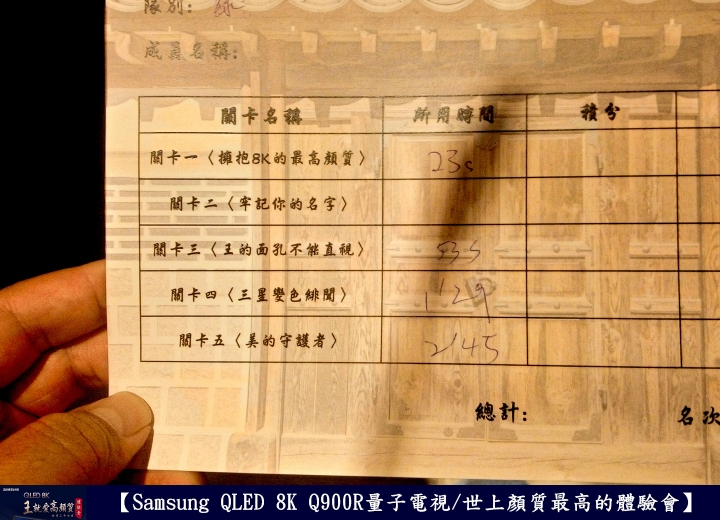 隊別: 綠
成員名稱:
關卡名稱 所用時間 積分
關卡一〈擁抱8K的最高顏質〉 23s
關卡二〈牢記你的名字〉
關卡三〈王的面孔不能直視〉 53s
關卡四〈三星變色緋聞〉 1'29
關卡五〈美的守護者〉 2'45
總計: 名次
QLED 8K
王就愛高顏質
【Samsung QLED 8K Q900R量子電視/世上顏質最高的體驗會】